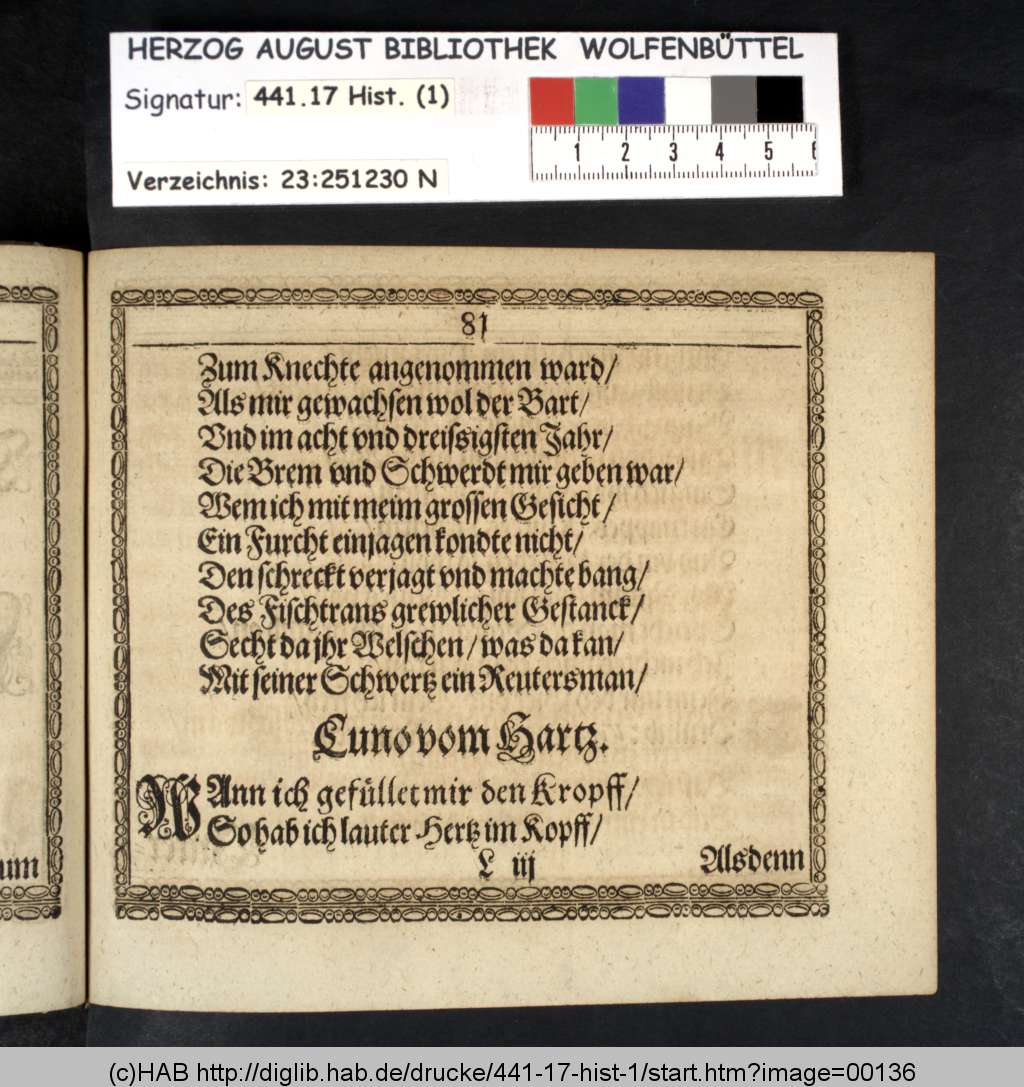 HERZOG AUGUST BIBLIOTHEK WOLFENBÜTTEL
Signatur: 441.17 Hist. (1)
1 2 3 4 5 6
Verzeichnis: 23:251230 N
81
Zum Knechte angenommen ward/
Als mir gewachsen wol der Bart/
Vnd im acht vnd dreissigsten Jahr/
Die Brem vnd Schwerdt mir geben war/
Wem ich mit meim grossen Gesicht/
Ein Furcht einjagen kondte nicht/
Den schreckt verjagt vnd machte bang/
Des Fischtrans grewlicher Gestanck/
Secht da jhr Welschen/ was da kan/
Mit seiner Schwertz ein Reutersman/
Cuno vom Hartz.
WAnn ich gefüllet mir den Kropff/
So hab ich lauter Hertz im Kopff/
L iij
Alsdenn
(c)HAB http://diglib.hab.de/drucke/441-17-hist-1/start.htm?image=00136